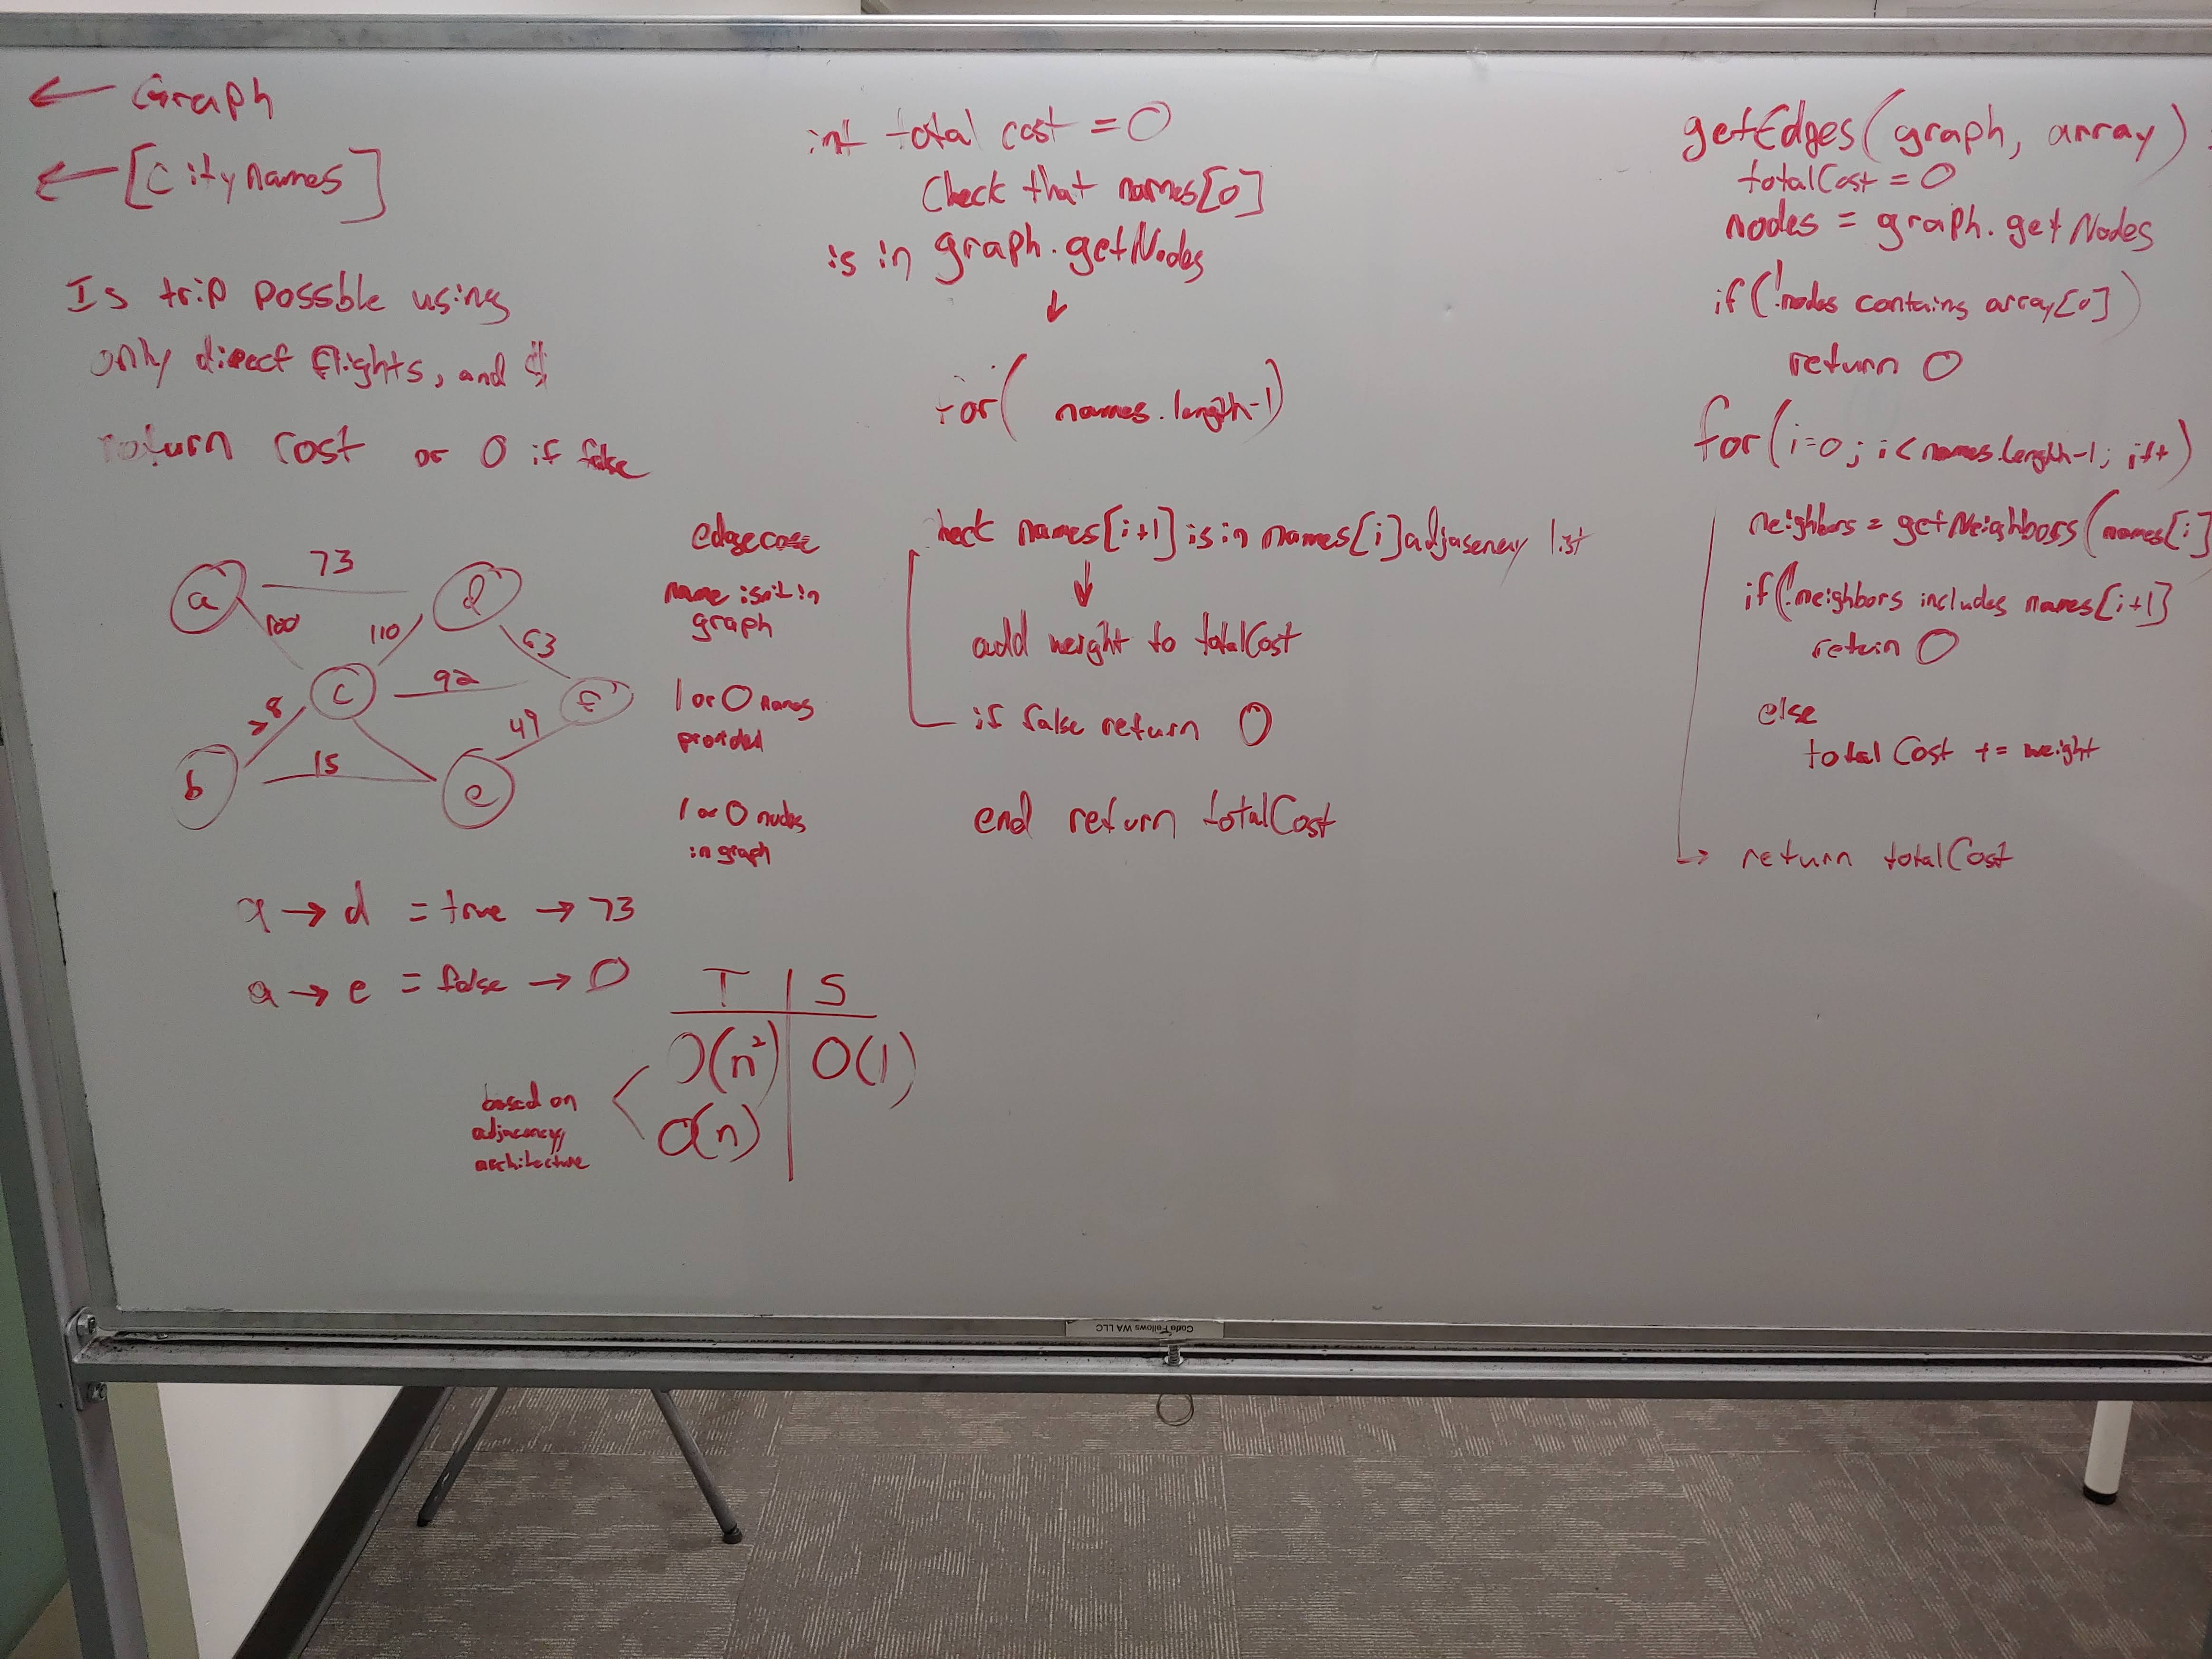 ← Graph
← [CityNames]
Is trip possble using
only direct flights, and $
return cost or 0 if false
a
73
d
100
110
63
c
92
f
38
49
b
15
e
edgecase
name isn't in
graph
1 or 0 names
provided
1 or 0 nodes
in graph
a → d = true → 73
a → e = false → 0
T | S
O(n²) O(1)
O(n)
based on
adjacency
architecture
int total cost = 0
Check that names[0]
is in graph.getNodes
↓
for( names.length-1)
heck names[i+1] is in names[i] adjasenency list
↓
add weight to totalCost
if false return 0
end return totalCost
getEdges(graph, array)
totalCost = 0
nodes = graph.getNodes
if(!nodes contains array[0])
return 0
for(i=0; i<names.length-1; i++)
neighbors = getNeighbors(names[i]
if(!neighbors includes names[i+1]
retuin 0
else
total Cost += weight
→ return totalCost
Code Fellows WA LLC